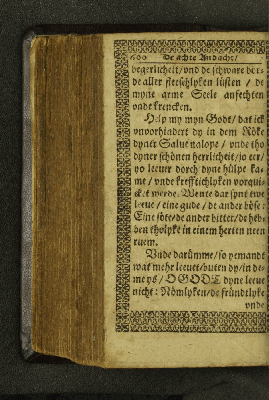 600 De achte Andacht/
begerlicheit/vnd de schware bör-
de aller fleeschlyken lüsten / de
myne arme Seele anfechten
vnde krencken.
Help my myn Godt/ dat ick
vnvorhindert dy in dem Röke
dyner Salue nalope / vnde tho
dyner schönen herrlicheit/jo eer/
yo leeuer dorch dyne hülpe ka-
me / vnde krefftichlyken vorqui-
cket werde. Wente dar synt twe
leeue / eine gude / de ander böse:
Eine söte/de ander bitter/de heb-
ben tholyke in einem herten neen
ruem.
Vnde darümme/so yemandt
wat mehr leeuet/buten dy/in de-
me ys / O GODT dyne leeue
nicht: Nömlyken/de fründtlyke
vnde